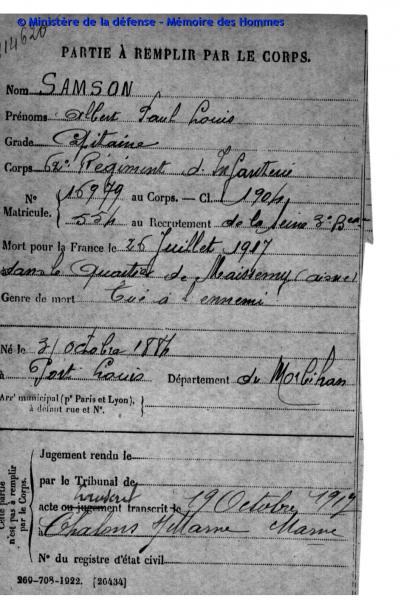 © Ministère de la défense - Mémoire des Hommes
PARTIE À REMPLIR PAR LE CORPS.
Nom SAMSON
Prénoms Albert Paul Louis
Grade Capitaine
Corps 2e Régiment d'Infanterie
N° Matricule. { 15979 au Corps. — Cl. 1904
554 au Recrutement de la Seine 3e Beau
Mort pour la France le 26 Juillet 1917
dans le Quartier de Maissemy (Aisne)
Genre de mort Tué à l'ennemi
Né le 31 octobre 1884
à Port Louis Département du Morbihan
Arrt municipal (pr Paris et Lyon),
à défaut rue et N°.
Cette partie
n'est pas à remplir
par le Corps.
Jugement rendu le
par le Tribunal de
acte ou jugement transcrit le 19 Octobre 1917
à Chalons s/ Marne Marne
N° du registre d'état civil
269-708-1922. [26434]